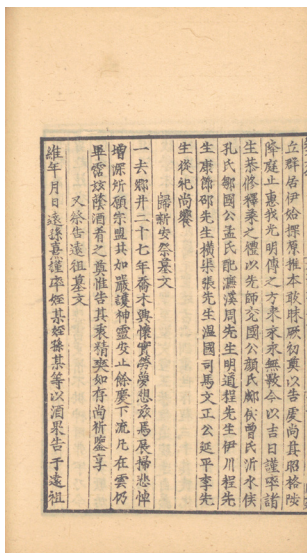 丘群居伊始探原推本敢昧厥初奠以告虔尚其昭格陟
降庭止惠我光明傳之方來永永無斁今以吉日謹率諸
生恭修釋菜之禮以先師兗國公顏氏郕侯曾氏沂水侯
孔氏鄒國公孟氏配濂溪周先生明道程先生伊川程先
生康節邵先生橫渠張先生溫國司馬文正公延平李先
生從祀尚饗
歸新安祭墓文
一去鄉井二十七年喬木興懷實勞夢想茲焉展掃悲悼
增深所願宗盟共加嚴護神靈安止餘慶下流凡在雲仍
畢霑該蔭酒肴之奠惟告其衷精爽如存尚祈鑒享
又祭告遠祖墓文
維年月日遠孫熹謹率姪某姪孫某等以酒果告于遠祖